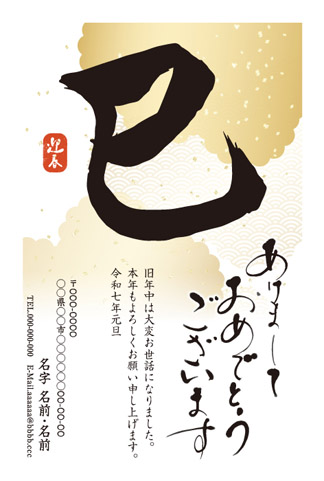 巳
迎春
あけまして
おめでとう
ございます
旧年中は大変お世話になりました。
本年もよろしくお願い申し上げます。
令和七年元旦
〒000-0000
〇〇県〇〇市〇〇〇〇〇〇00-00-00
名字 名前・名前
TEL.000-000-000 E-Mail.aaaaaa@bbbb.ccc